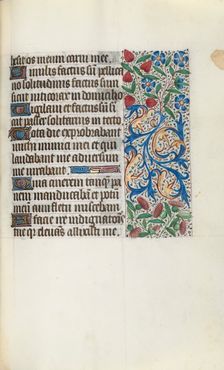 hesit os meum carni mee.
Similis factus sū pellica
no solitudinis factus sum
sicut nicticorax in domicilio
Vigilavi et factus sū si
cut passer solitarius in tecto
Tota die exprobrabant
michi inimici mei et qui
laudabant me adversum
me iurabant
Quia cinerem tanqȝ pa
nem manducabā et potū
meū cum fletu miscebam
A facie ire indignationis
tue qr elevans allisisti me.